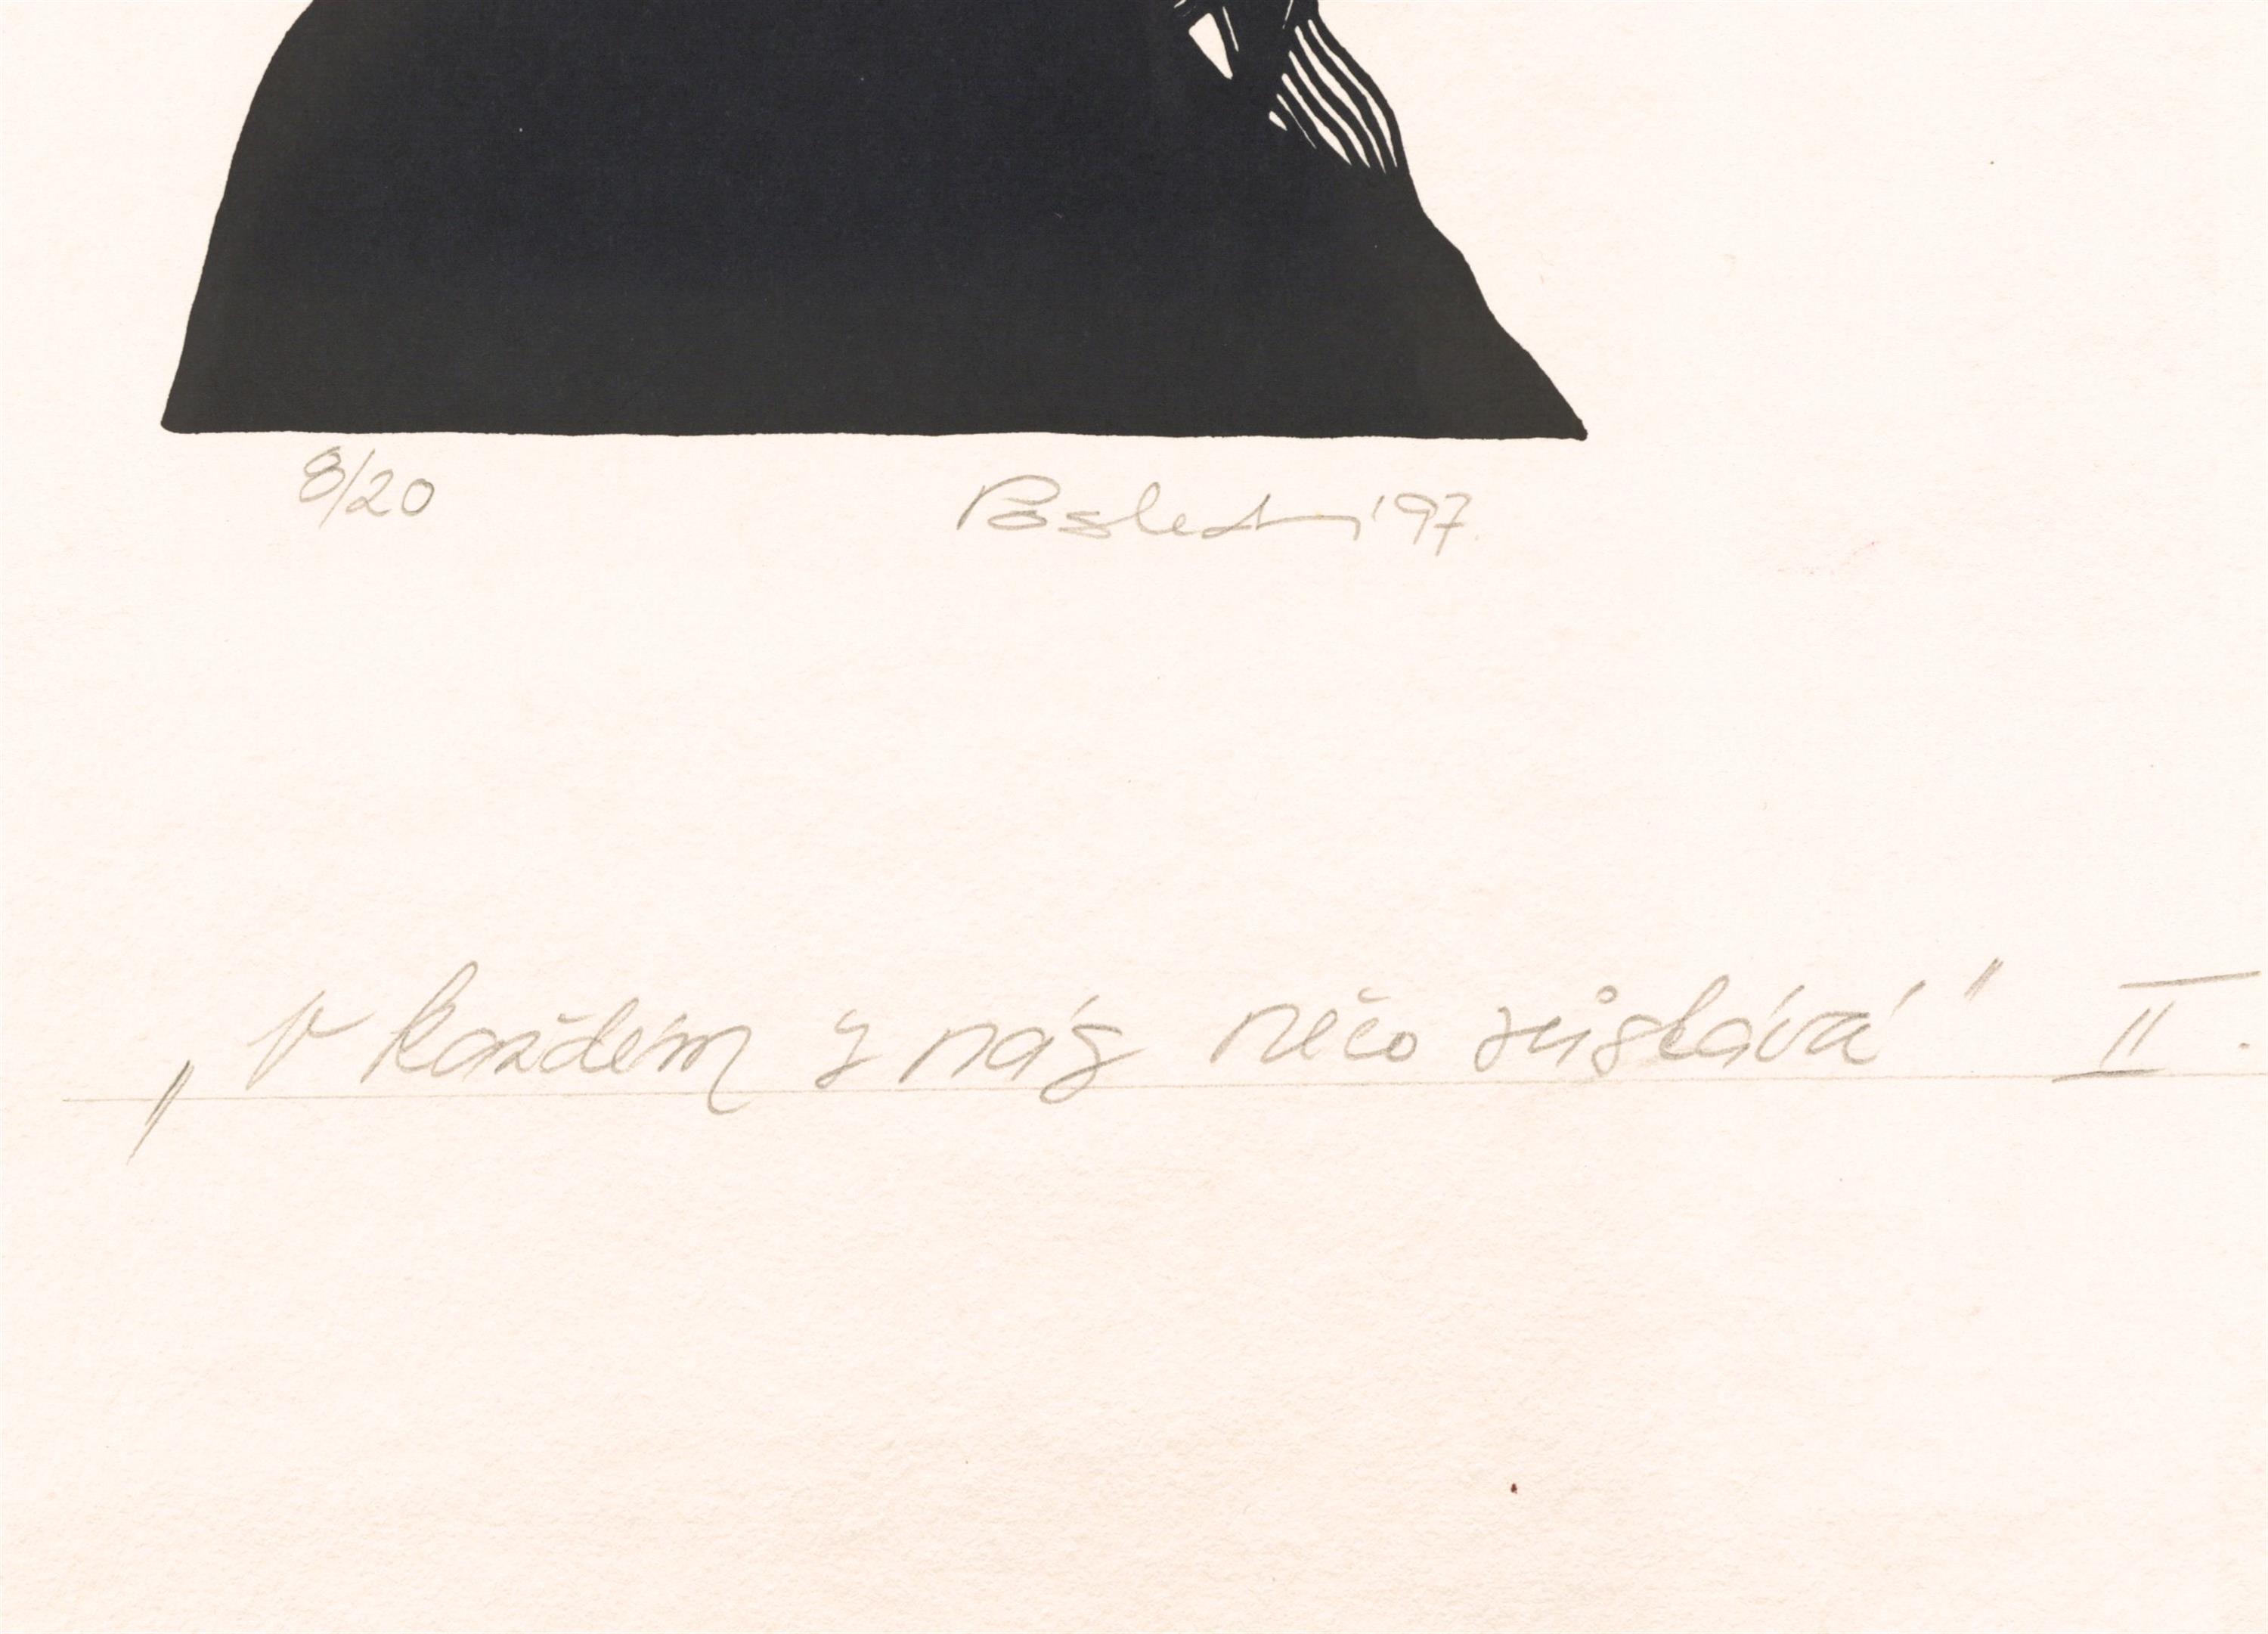 8/20 Posledni '97.
„v každém z nás něco zůstává" II.